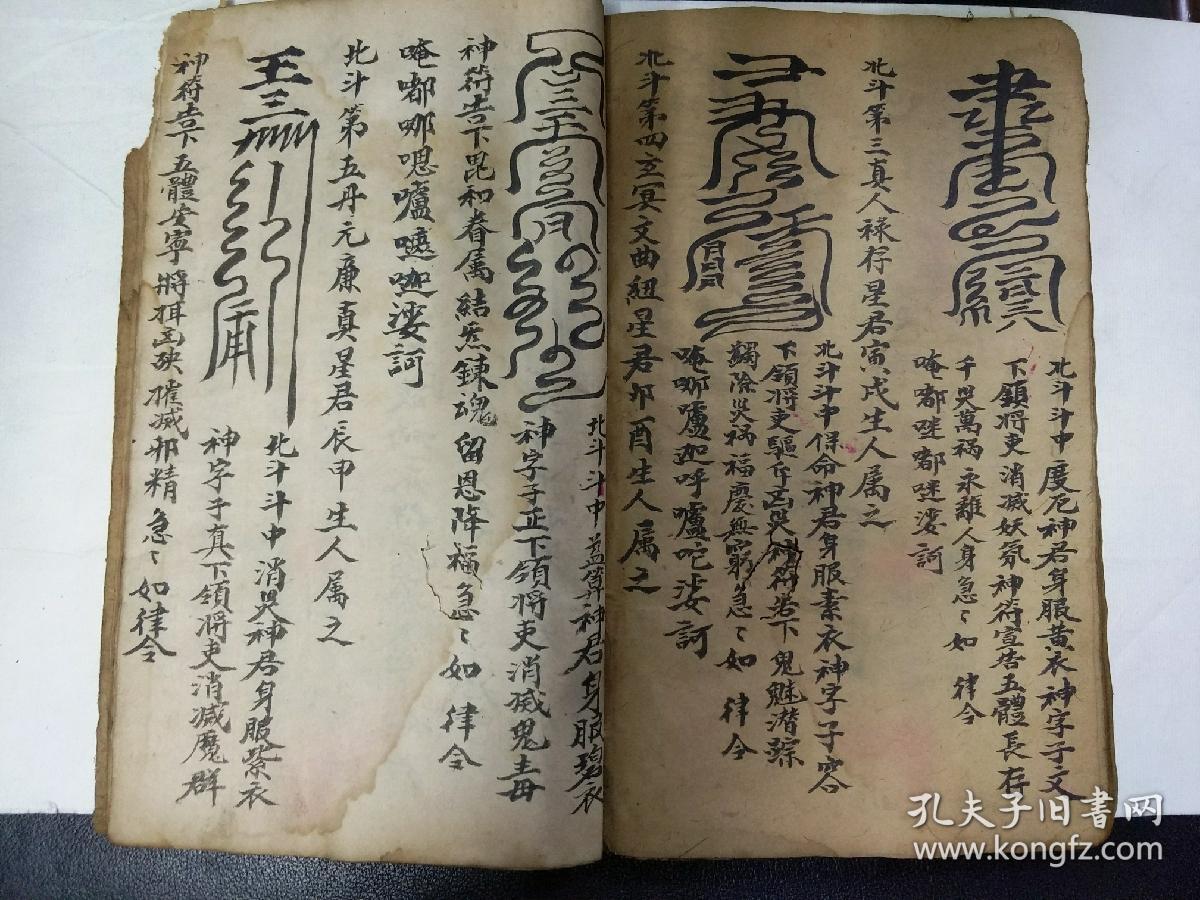 北斗斗中度厄神君身服黄衣神字子文
下領將吏消滅妖氛神符宣告五體長存
千災萬禍永離人身急〻如 律令
唵嘟㖿嘟㖿娑訶
北斗第三真人禄存星君寅戌生人属之
北斗斗中保命神君身服素衣神字子容
下領將吏驅斥凶災神符若下鬼魅潜踪
蠲除災禍福慶無窮急〻如 律令
唵哪嚧迦呼嚧吃娑訶
北斗第四玄冥文曲紐星君夘酉生人属之
北斗斗中益算神君身服碧衣
神字子正下領將吏消滅鬼毒
神符告下昆和眷属結炁鍊魂留恩降福急〻如 律令
唵嘟哪嗯嚧娑訶
北斗第五丹元廉真星君辰申生人属之
北斗斗中消災神君身服紫衣
神字子真下領將吏消滅魔群
神符告下五體安寧將凶殃摧滅邪精急〻如律令
孔夫子旧书网
www.kongfz.com